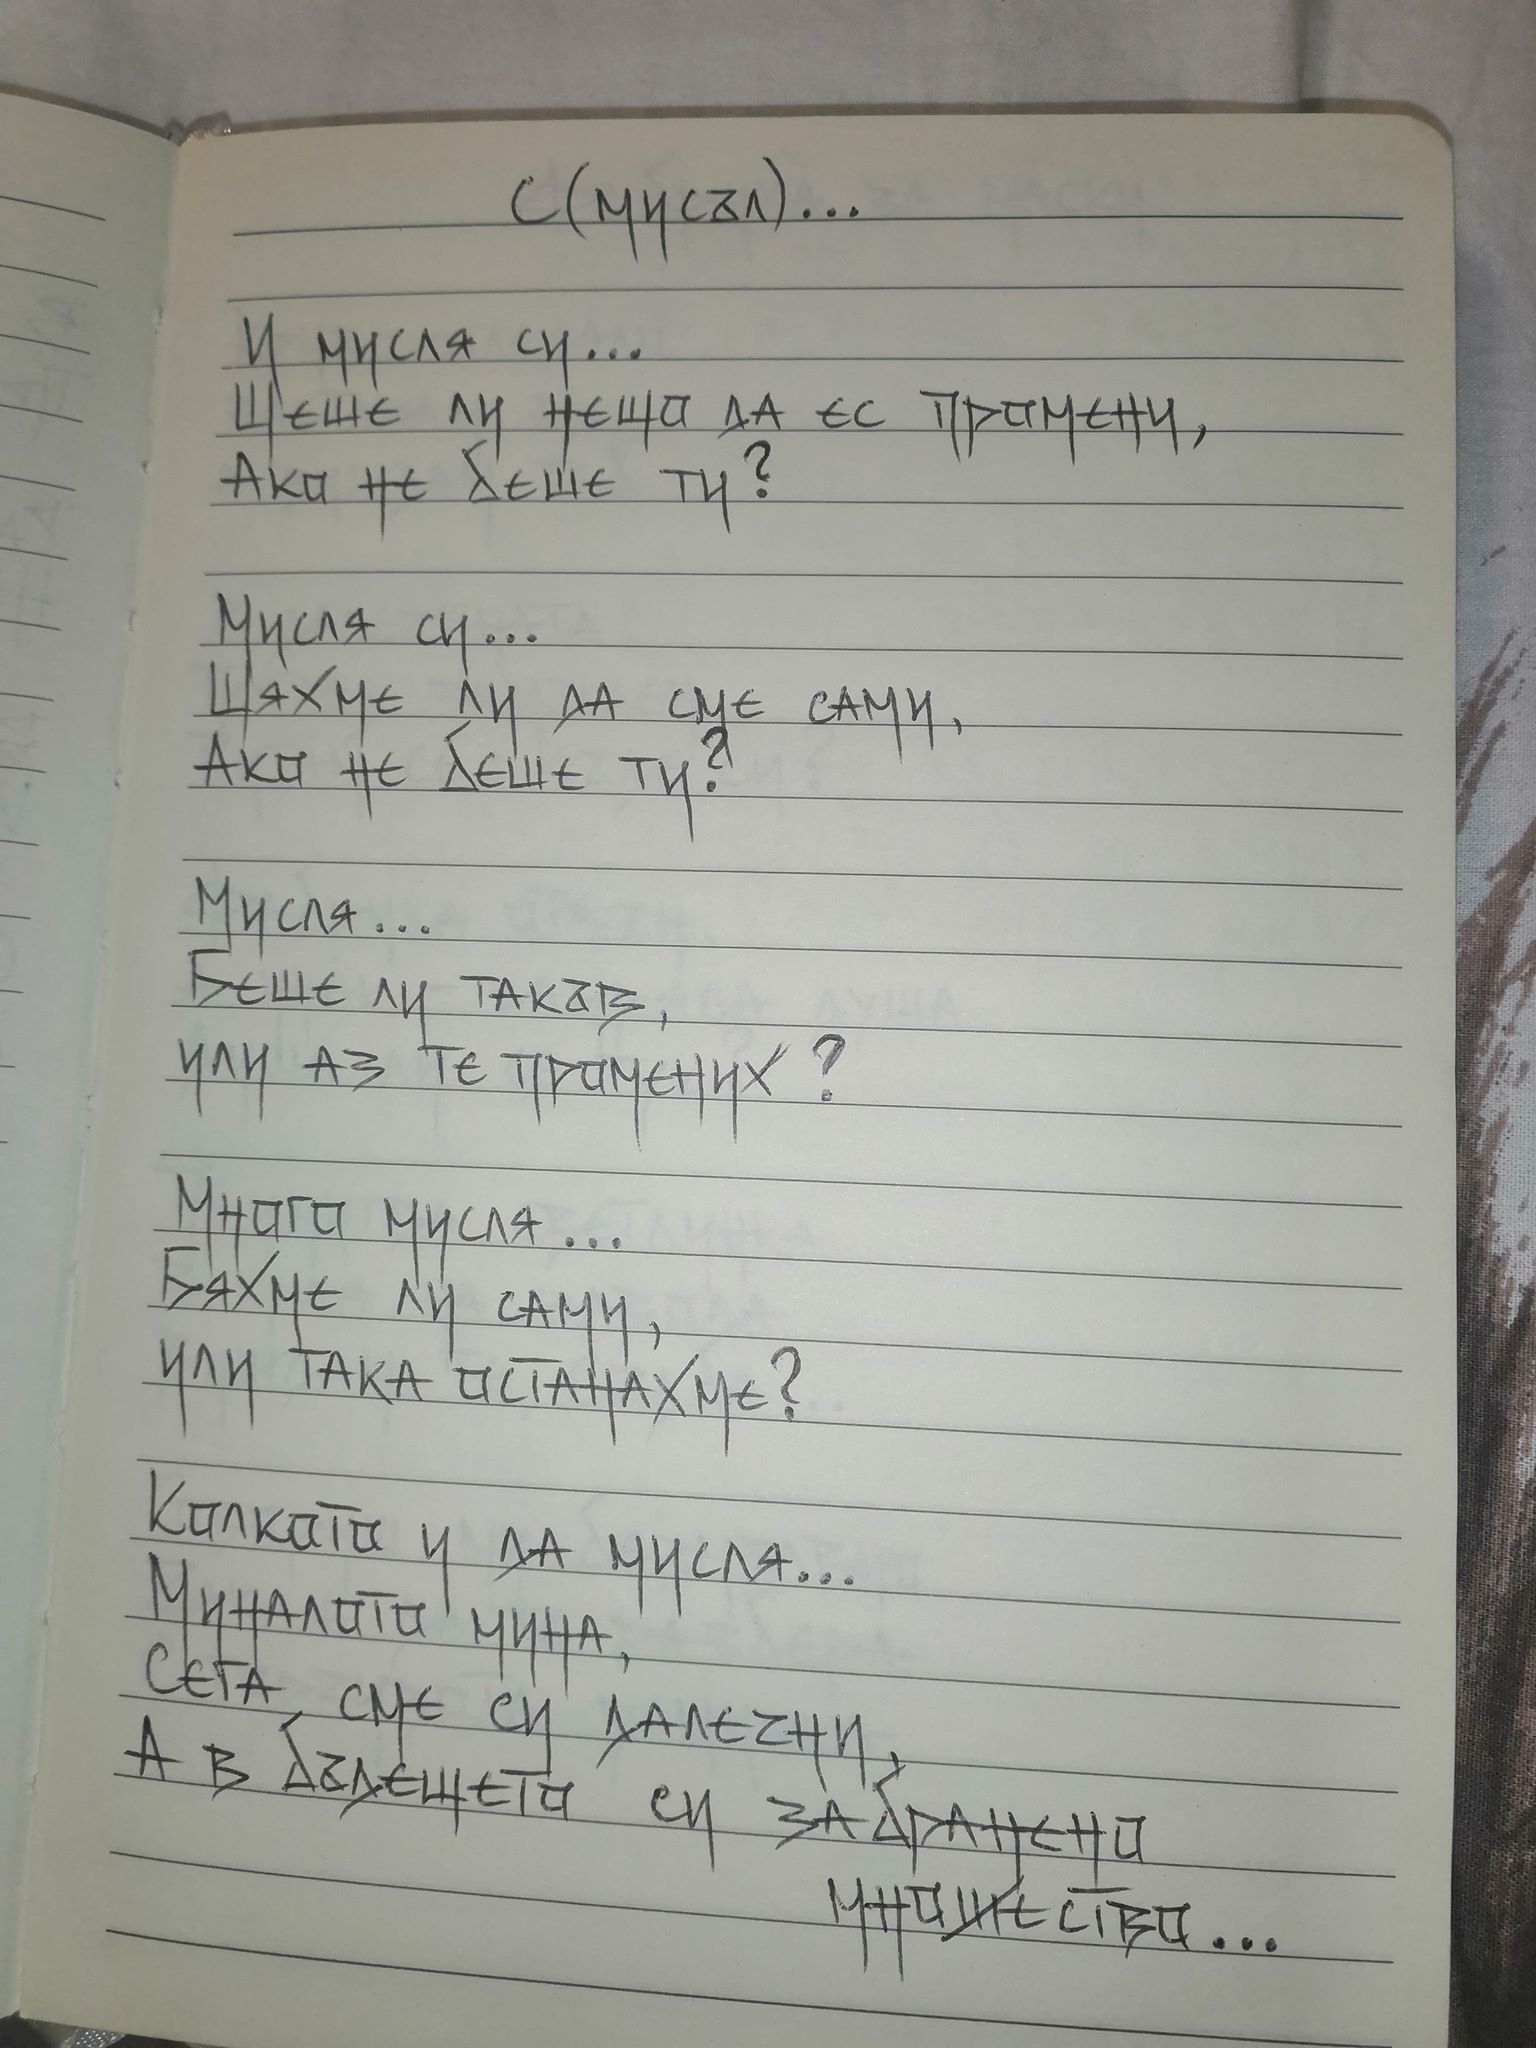 С(мисъл)...
И мисля си...
Щеше ли нещо да ес промени,
Ако не беше ти?
Мисля си...
Щяхме ли да сме сами,
Ако не беше ти?
Мисля...
Беше ли такъв,
или аз те промених?
Много мисля...
Бяхме ли сами,
или така останахме?
Колкото и да мисля...
Миналото мина,
Сега сме си далечни,
А в бъдещето си забранено
множество...